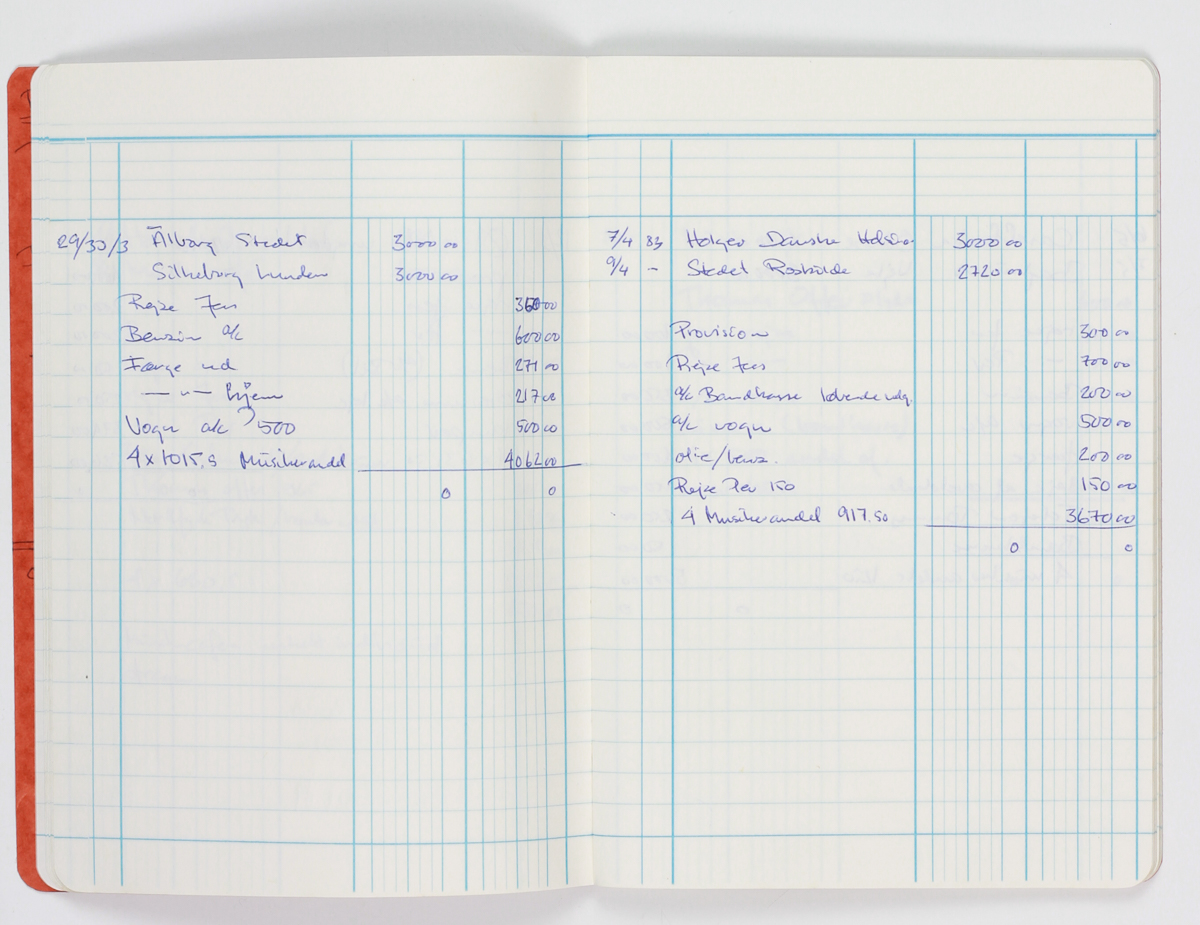 29/30/3 Ålborg Stedet 3000 00
Silkeborg Lunden 3000 00
Rejse Jens 350 00
Benzin a/c 600 00
Færge ud 271 00
— " — hjem 217 00
Vogn a/c 500 500 00
4 x 1015,5 Musikerandel 4062 00
0 0
7/4 83 Holger Danske Helsinor 3000 00
9/4 - Stedet Roskilde 2720 00
Provision 300 00
Rejse Jens 700 00
a/c Bandkasse løbende udg. 200 00
a/c vogn 500 00
olie/benz. 200 00
Rejse Per 150 150 00
4 Musikerandel 917.50 3670 00
0 0